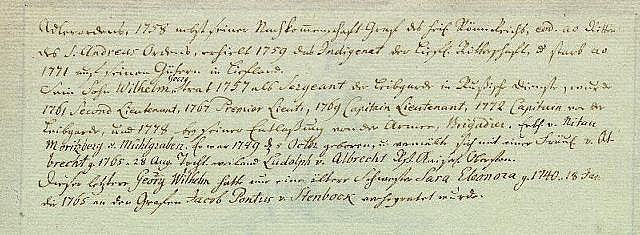 Adlerordens, 1758 nebst seiner Nachkommenschaft Graf des heil. Römischen Reichs, eod. ao Ritter
des S. Andreas Ordens, erhielt 1759 das Indigenat der Liefl. Ritterschaft, starb ao
1771 auf seinen Gühtern in Liefland.
Sein Sohn Wilhelm Georg trat 1757 als Sergeant der Leibgarde in Rußisch Dienste, wurde
1761 Second Lieutenant, 1767 Premier Lieut., 1769 Capitain Lieutenant, 1772 Capitain von der
Leibgarde, und 1778 bey seiner Entlaßung von der Armee, Brigadier. Erbh. v. Nitau
Moritzberg u. Mühlgraben, Er war 1749 d. Octbr. geboren, u. vermählte sich mit einer Fräul. v. Al-
brecht g. 1765. 28 Aug. Tocht. weiland Ludolph v. Albrecht Obersten.
Dieser letztere Georg Wilhelm hatte nur eine ältere Schwester Sara Eleonora g. 1740. 18
die 1765 an den Grafen Jacob Pontus v. Stenbock verheyratet wurde.